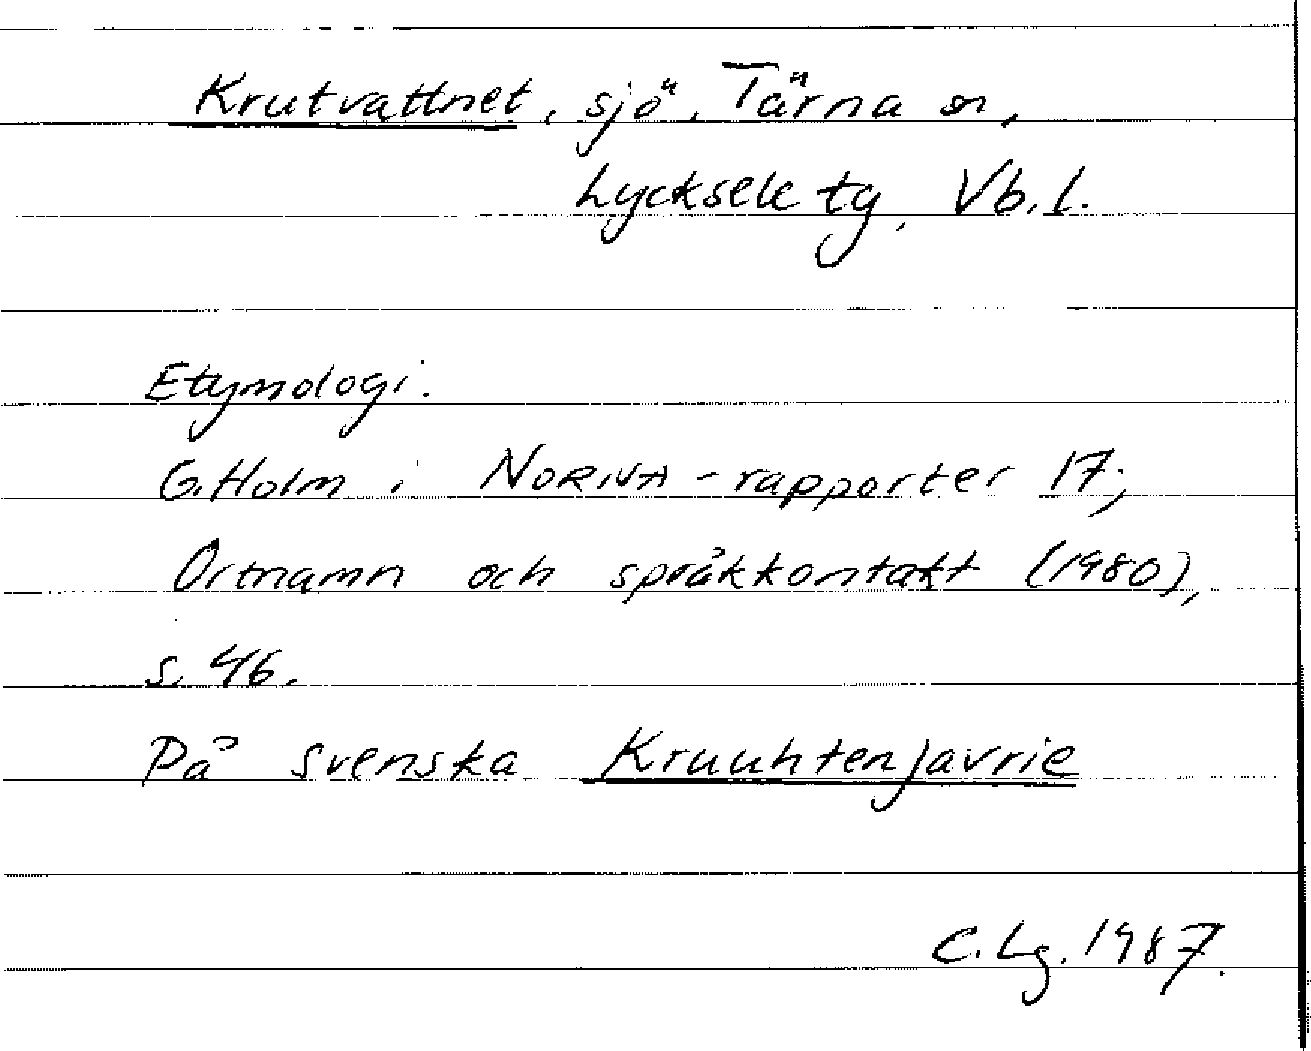 Krutvattnet, sjö, Tärna sn,
Lycksele tg, Vb. l.
Etymologi.
G. Holm i NORNA-rapporter 17;
Ortnamn och språkkontakt (1980),
s. 46.
På svenska Kruuhtenjavrie
C. Lg. 1987.